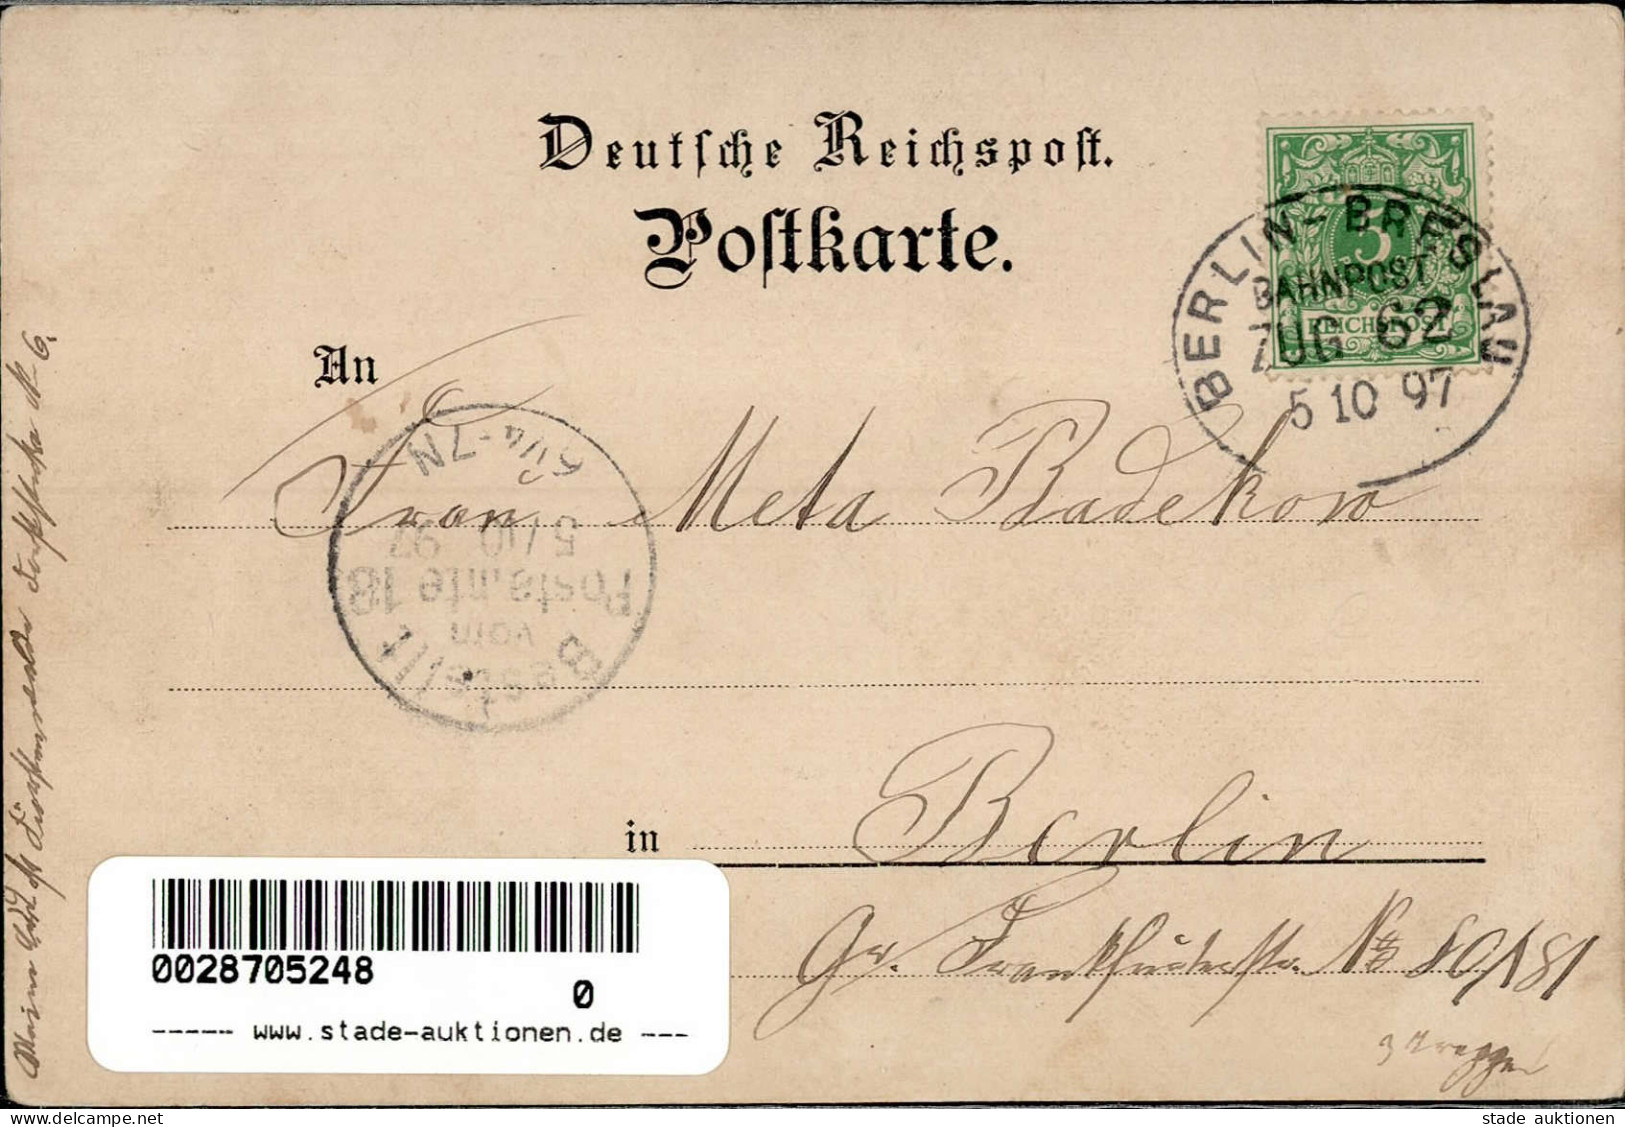 Deutsche Reichspost.
Postkarte.
5
REICHSPOST
BERLIN-BRESLAU
BAHNPOST
ZUG 62
5 10 97
An
Frau Meta Badekow
6¼-7N
5/10 97
Postamte 18
vom
Bestellt
in Berlin
Gr. Frankfurterstr. No 80/81
3 Treppen
Meine ist Fürstenwalde N- 6.
0028705248
0
----- www.stade-auktionen.de ---
delcampe.net
stade auktionen